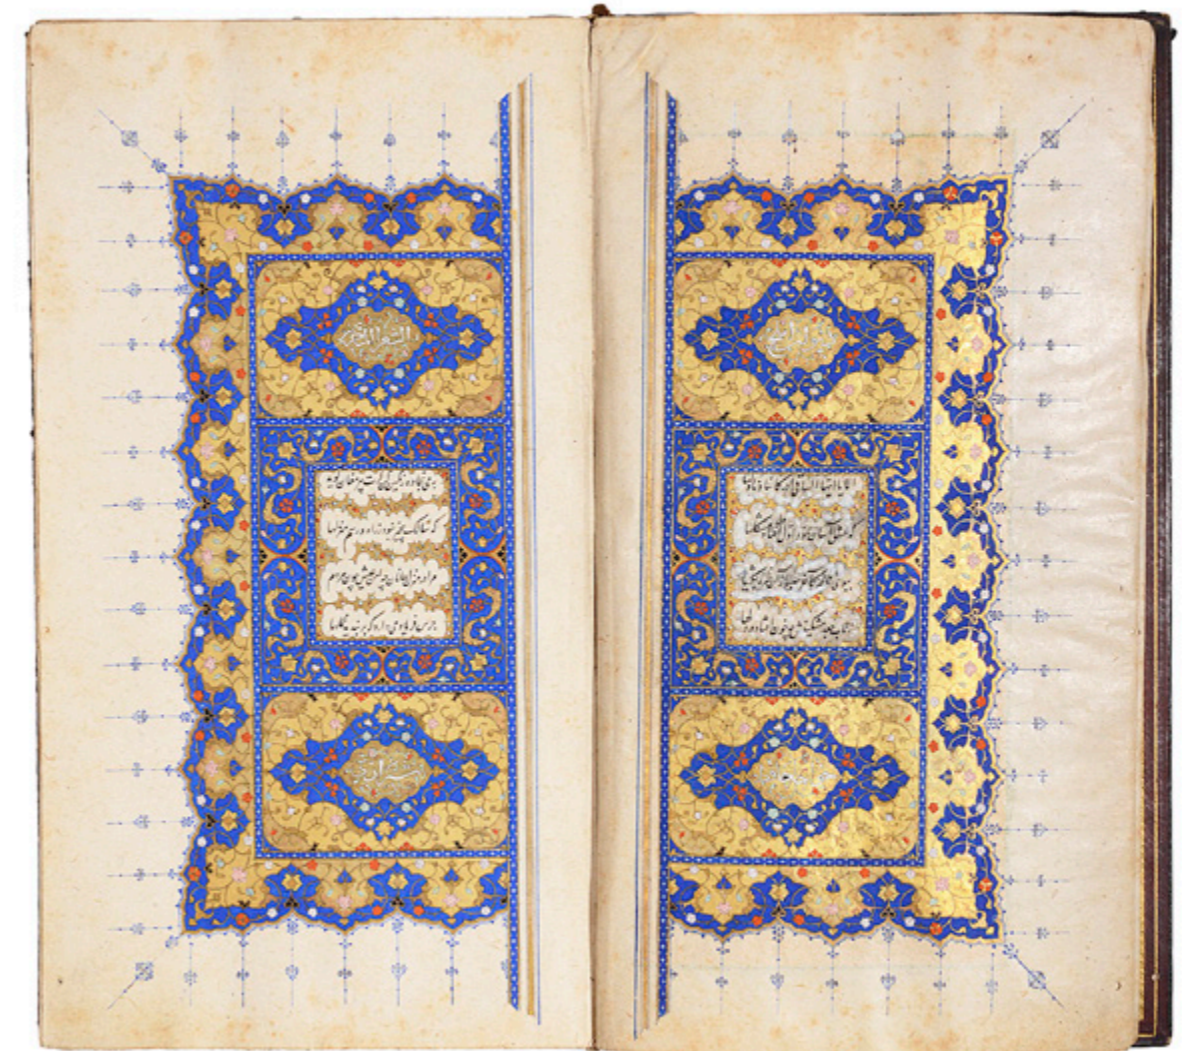 الا یا ایها الساقی ادر کاسا وناولها
که عشق آسان نمود اول ولی افتاد مشکلها
ببوی نافه کاخر صبا زان طره بگشاید
جعد مشکینش چه خون افتاد در دلها
بمی سجاده رنگین کن کرت پیر مغان کوید
که سالک بی خبر نبود ز راه و رسم منزلها
مرا در منزل جانان چه امن عیش چون هر دم
جرس فریاد می دارد که بربندید محملها